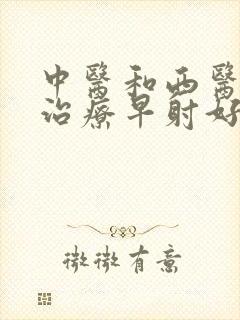 中醫和西醫
治療早射好
微微有意